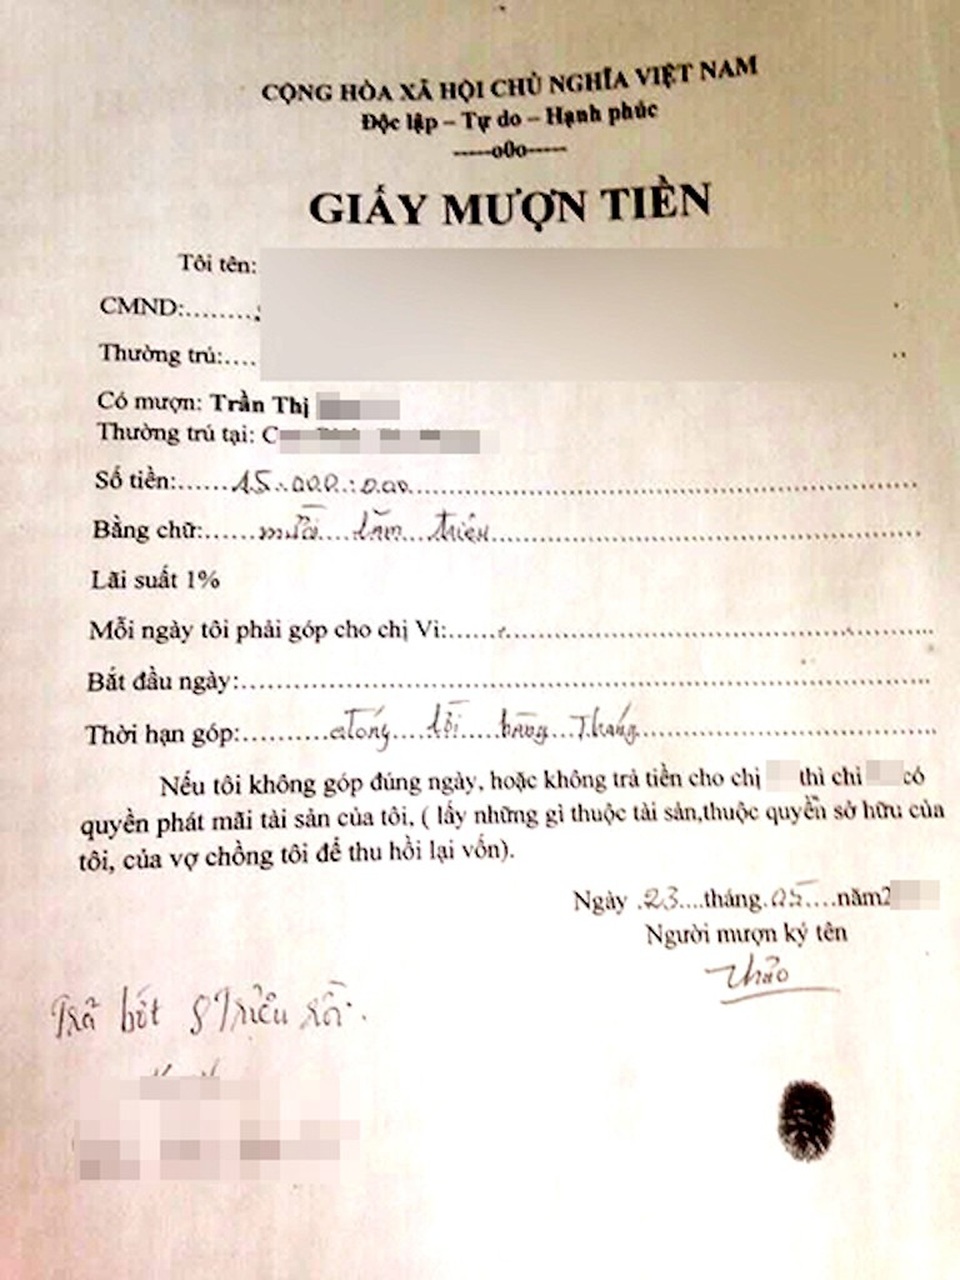 CỘNG HÒA XÃ HỘI CHỦ NGHĨA VIỆT NAM
Độc lập – Tự do – Hạnh phúc
-----o0o-----
GIẤY MƯỢN TIỀN
Tôi tên:
CMND:........
Thường trú:....
Có mượn: Trần Thị
Thường trú tại: C
Số tiền:......15.000.000......
Bằng chữ:......mười....lăm....triệu......
Lãi suất 1%
Mỗi ngày tôi phải góp cho chị Vi:......
Bắt đầu ngày:......
Thời hạn góp:......đóng....lời....hàng....Tháng......
Nếu tôi không góp đúng ngày, hoặc không trả tiền cho chị thì chị có
quyền phát mãi tài sản của tôi, ( lấy những gì thuộc tài sản,thuộc quyền sở hữu của
tôi, của vợ chồng tôi để thu hồi lại vốn).
Ngày .23....tháng.05....năm2
Người mượn ký tên
Thảo
Trã bớt 8 Triệu rồi.